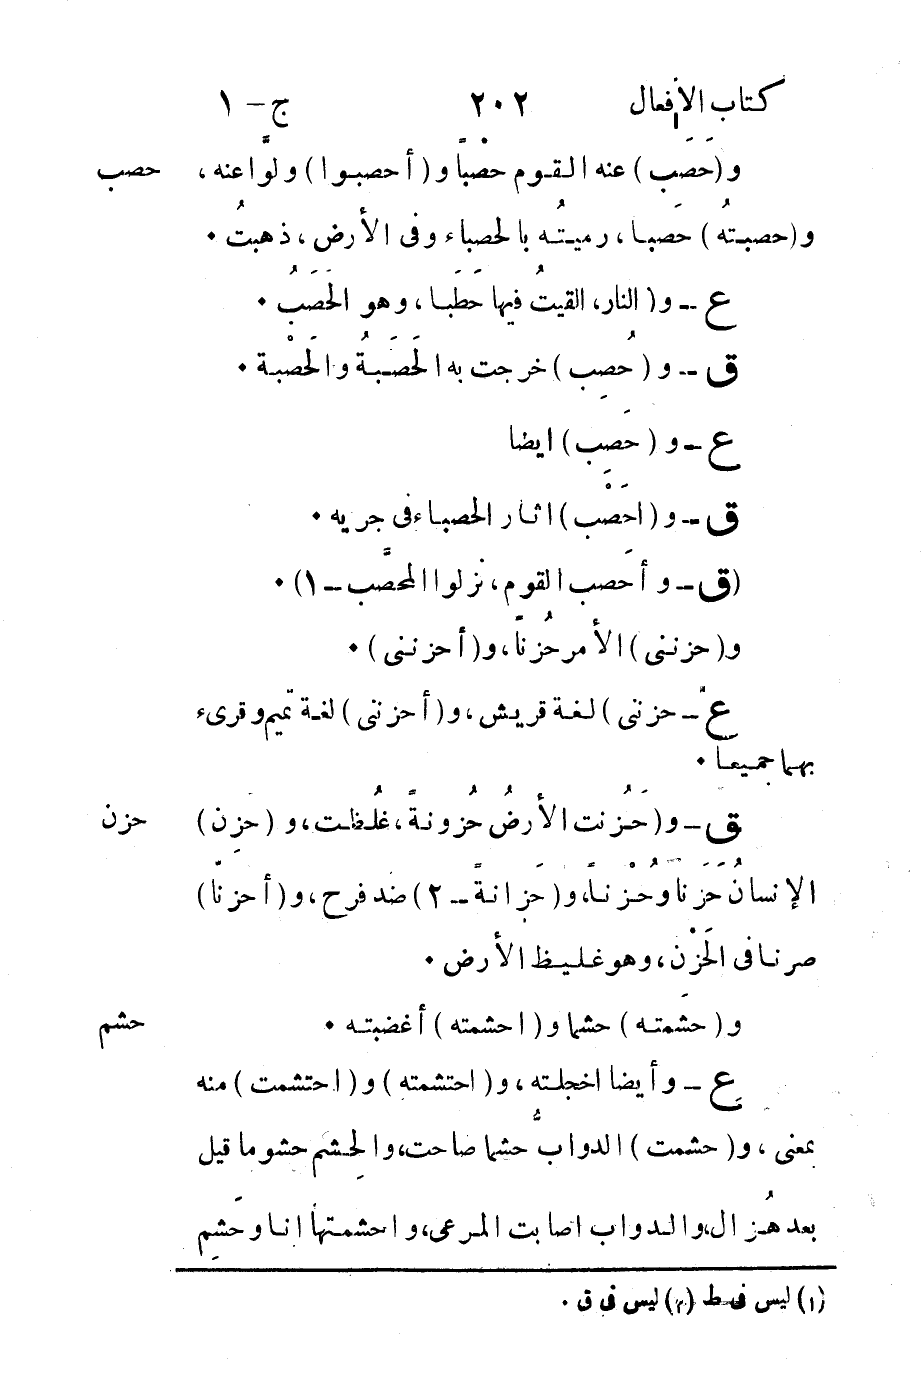 كتاب الأفعال ٢٠٢ ج - ١
و(حَصَب) عنه القوم حصْباً و(أحصبوا) ولَّوا عنه، حصب
و(حصبتهُ) حصَبا، رميتُه بالحصباء وفى الأرض، ذهبتُ.
ع ـ و(النار، القيتُ فيها حَطَبا، وهو الحَصَبُ.
ق ـ و(حُصِب) خرجت به الحَصَبةُ والحَصْبة.
ع ـ و(حَصِب) ايضا
ق ـ و(احَصْب) اثار الحصباء فى جريه.
(ق ـ و أحَصب القوم، نزلوا المحصَّب ـ ١).
و(حزننى) الأمر حُزناً، و(أحزننى).
ع ـ حزننى) لغة قريش، و(أحزننى) لغة تميم وقرىء
بهما جميعا.
ق ـ و(حَزُنت الأرضُ حُزونةً، غلُظت، و(حزِن) حزن
الإنسانُ حَزَناً وحُزْناً، و(حَزانةً ـ ٢) ضد فرح، و(أحزنّا)
صرنا فى الحَزْن، وهو غليظ الأرض.
و(حشَمته) حشما و(احشمته) أغضبته. حشم
ع ـ وأيضا اخجلته، و(احتشمته) و(احتشمت) منه
بمعنى، و(حشمت) الدوابُّ حشما صاحت، والحِشم حشو ما قيل
بعد هُزال، والدواب اصابت المرعى، واحشمتها انا وحَشِم
(١) ليس فى ط (٢) ليس فى ق.